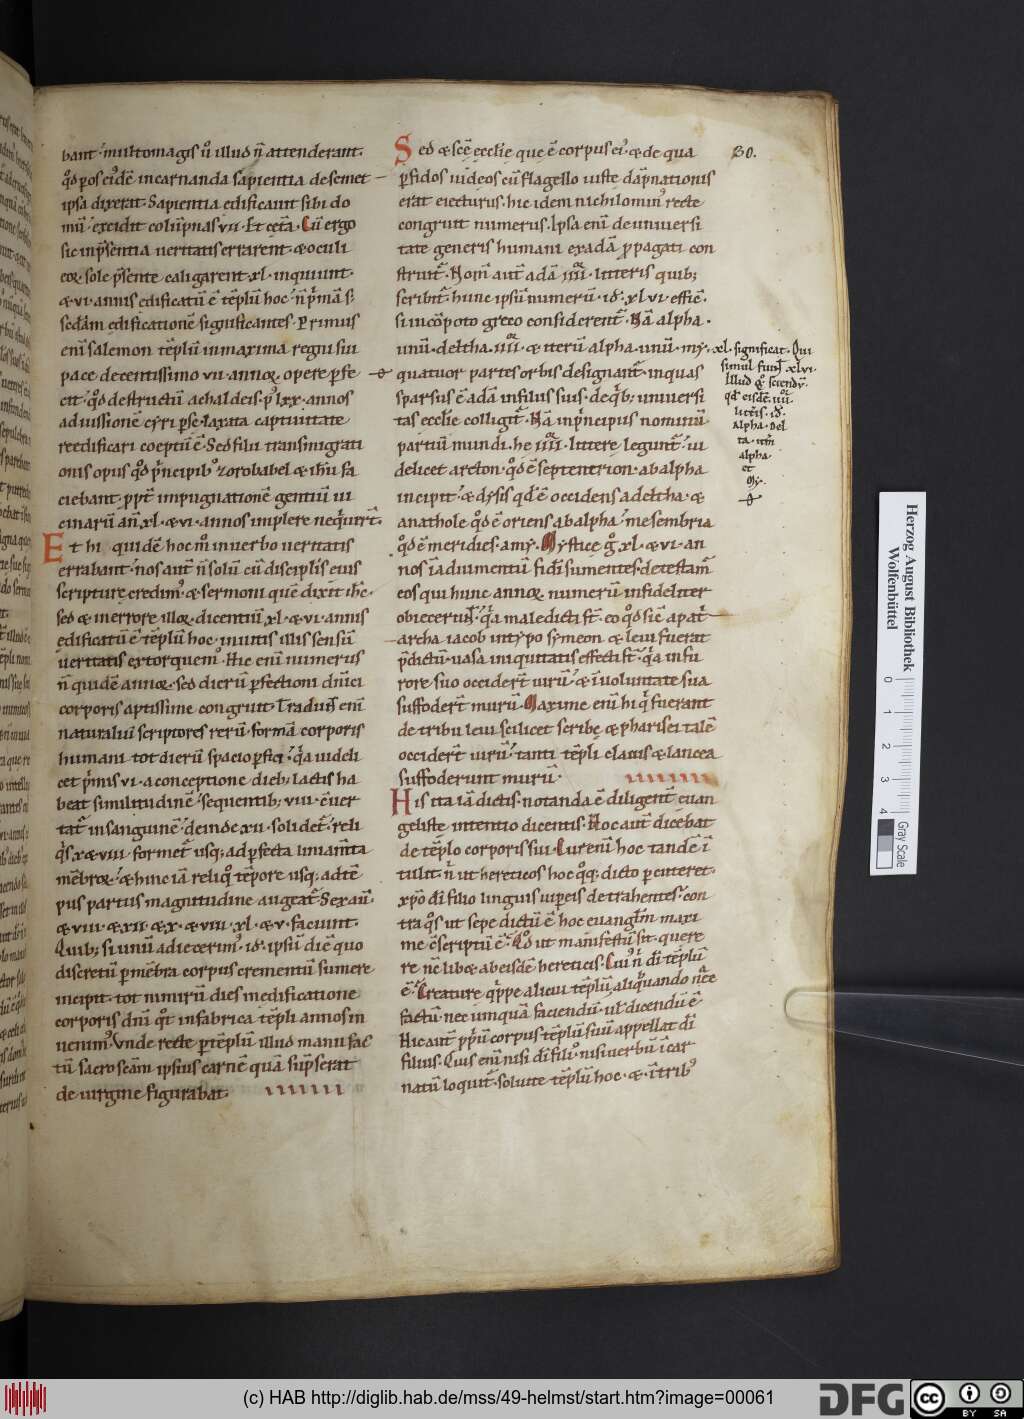 bant ̛ multo magis ů illud n̄ attenderant.
qd̊ ꝑos ei᷒dē incarnanda sapientia desemet
ipsa dixerat. Sapientia edificauit sibi do
mū ̛ excidit colūpnas vii. Et cetā. Cū ergo
sic inp̄sentia ueritatis errarent. ⁊ oculi
eoꝝ sole p̄sente caligarent. xl. inquiunt.
⁊ vi. annis edificatū ē tēplū hoc
sc̄dam edificationē significantes. Primus
enī salemon tēplū in maxima regni sui
pace decentissimo vii. annoꝝ opere ꝑfe
cit ̛ qd̊ destructū a chaldeis. p᷒ lxx. annos
ad iussionē cyri ꝑse. laxata captiuitate
reedificari coeptū ē. Sed filii transmigrati
onis opus qd̊ p̄ncipib᷒ zorobabel ⁊ ih̄u fa
ciebant. ppt̄ impugnationē gentiū ui
cinarū an̄. xl. ⁊ vi. annos implere nequiert̄.
Et hi quidē hoc m̊ in uerbo ueritatis
errabant ̛ nos aut̄ n̄ solū cū disciplis eius
scripture eredim᷒. ⁊ sermoni quē dixit ih̄c.
sed ⁊ in errore illoꝝ. dicentiū. xl. ⁊ vi. annis
edificatū ē tēplū hoc. inuitis illis sensū
ueritatis extorquem᷒. Hic enī numerus
n̄ quidē annoꝝ. sed dierū ꝑfectioni dn̄ici
corporis aptissime congruit. Tradunt enī
naturaliū scriptores rerū. formā corporis
humani tot dierū spacio ꝑfici ̛ q̄a uideli
cet p̄mis vi. a conceptione dieb; lactis ha
beat similitudinē ̛ sequentib; viiii. cōuer
tat̄ in sanguinē ̛ deinde xii. solidet̄ ̛ reli
q̄s x. ⁊ viii. formet̄ usq; ad ꝑfecta liniam̄ta
mēbroꝝ ̛ ⁊ hinc iā reliq̊ tēpore usq; ad tē
pus partus magnitudine augeat̄. Sex aū
⁊ viiii. ⁊ xii. ⁊ x. ⁊ viii. xl. ⁊ v. faciunt.
Quib; si unū adiecerim᷒. id. ipsū diē quo
discretū ꝑ mēbra corpus crementū sumere
incipit. tot nimirū dies in edificatione
corporis dn̄i q̊t in fabrica tēpli annos in
uenim᷒. Unde recte ꝑ tēplū illud manu fac
tū sacrosc̄am ipsius carnē quā sūpserat
de uirgine figurabat.
Sed ⁊ sc̄e ecclie que ē corpus ei᷒. ⁊ de qua
ꝑfidos iudeos cū flagello iuste dāpnationis
erat eiecturus. hic idem nichilomin᷒ recte
congruit numerus. Ipsa enī de uniuersi
tate generis humani ex adā ppagati con
struit̄. Nom̄ aut̄ adā iiii. litteris quib;
scribit̄. hunc ipsū numerū. id. xl vi. effic̄.
si in cōpoto greco considerent̄. Nā alpha.
unū. deltha. iiii. ⁊ iterū alpha. unū. my.
quatuor partes orbis designant. in quas
sparsus ē adā in filiis suis. de q̄b; uniuersi
tas ecclie colligit̄. Nā in p̄ncipiis nominū
partiū mundi. he iiii. littere legunt̄ ̛ ui
delicet arcton. qd̊ ē septentrion. ab alpha
incipit ̛ ⁊ dysis qd̊ ē occidens a deltha. ⁊
anathole qd̊ ē oriens ab alpha ̛ mesembria
qd̊ ē meridies. a my. Mystice g̊. xl. ⁊ vi. an
nos ī adiumentū fidī sumentes. detestam᷒
eos qui hunc annoꝝ numerū infideliter
obiecerunt ̛ q̄a maledicti st̄. eo qd̊ sic̄ a pat̄
archa iacob in typo symeon ⁊ leui fuerat
p̄dictū. uasa iniquitatis effecti st̄ ̛ q̄a in fu
rore suo occider̄t uirū ̛ ⁊ ī uoluntate sua
suffoder̄t murū. Maxime enī hi q̄ fuerant
de tribu leui. scilicet scribe ⁊ pharisei talē
occider̄t uirū ̛ tanti tēpli clauis ⁊ lancea
suffoderunt murū.
His ita iā dictis. notanda ē diligent̄ euan
geliste intentio dicentis. Hoc aut̄ dicebat
de tēplo corporis sui. Cur enī hoc tandē ī
tulit. n̄ ut hereticos hoc q̊q; dicto ꝑcuteret.
xp̄o dī filio linguis uiꝑeis detrahentes ̛ con
tra q̊s ut sepe dictū ē hoc euanglm̄ maxi
me cōscriptū ē. Qd̊ ut manifestū sit. quere
re nē libeꝝ ab eisdē hereticis. Cui᷒ n̄ dī tēplū
ē. Creature q̄ppe alicui tēplū aliq̄uando nēe
factū. nec umquā faciendū. ul dicendū ē.
Hic aut̄ ppriū corpus tēplū suū appellat dī
filius. Cuis enī nisi dī filii᷒. nisi uerbū īcar
natū loquit̄. soluite tēplū hoc. ⁊ ī trib᷒
30.
xl. significat. Qui
simul funct xlvi.
Illud g̊. scicndū.
qd̊ eisdē. iiii.
litt̄is. id.
Alpha. Del
ta. itm̄
alpha.
et
My.
Herzog August Bibliothek
Wolfenbüttel
0 1 2 3 4
Gray Scale
(c) HAB http://diglib.hab.de/mss/49-helmst/start.htm?image=00061
DFG
cc BY SA